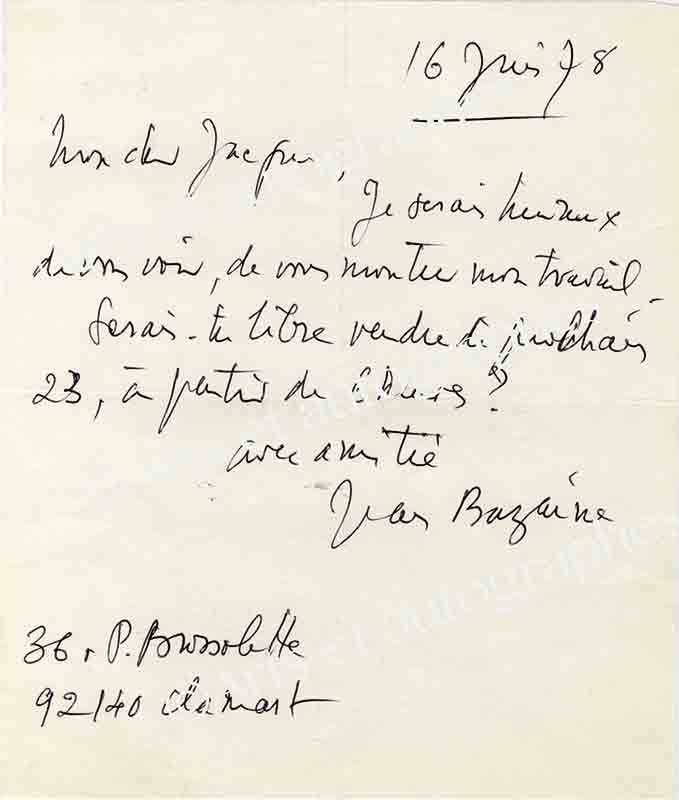 16 Juin 78
Mon cher Jacques,
Je serais heureux
de vous voir, de vous montrer mon travail.
Serais-tu libre vendredi prochain
23, à partir de heures ?
avec amitié
Jean Bazaine
36, P. Brossolette
92140 Clamart